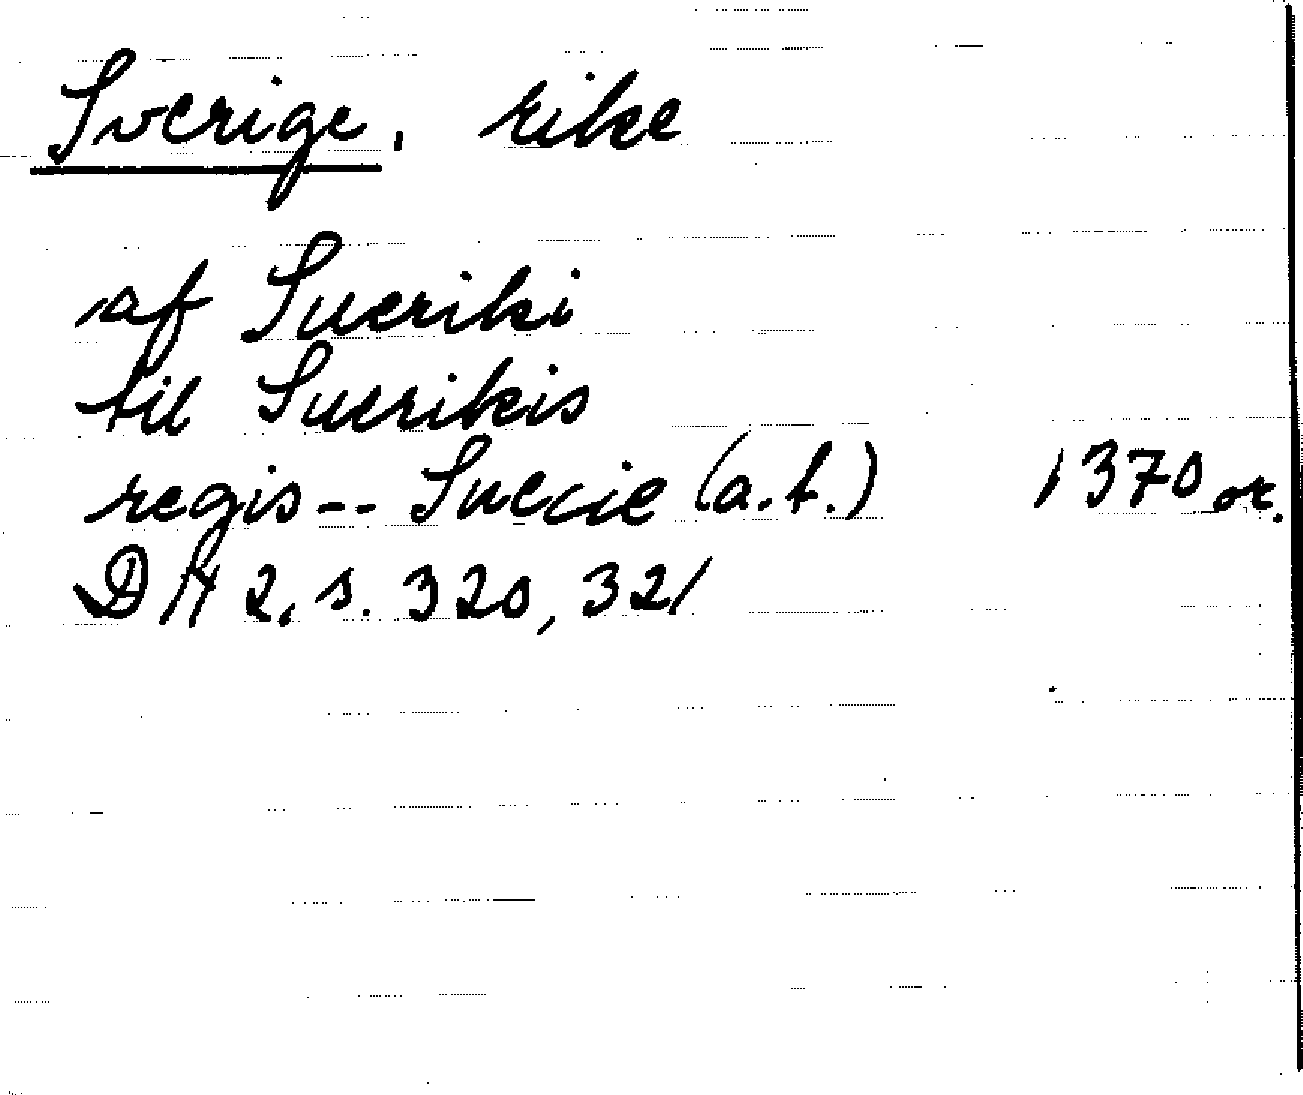 Sverige, rike
af Sueriki
til Suerikis
regis -- Suecie (a.f.) 1370 or.
DN 2, s. 320, 321